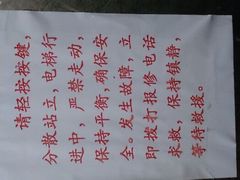 请轻按按键，
分散站立，电梯行
进中，严禁走动，
保持平衡，确保安
全。发生故障，立
即拨打报修电话
求救，保持镇静，
等待救援。